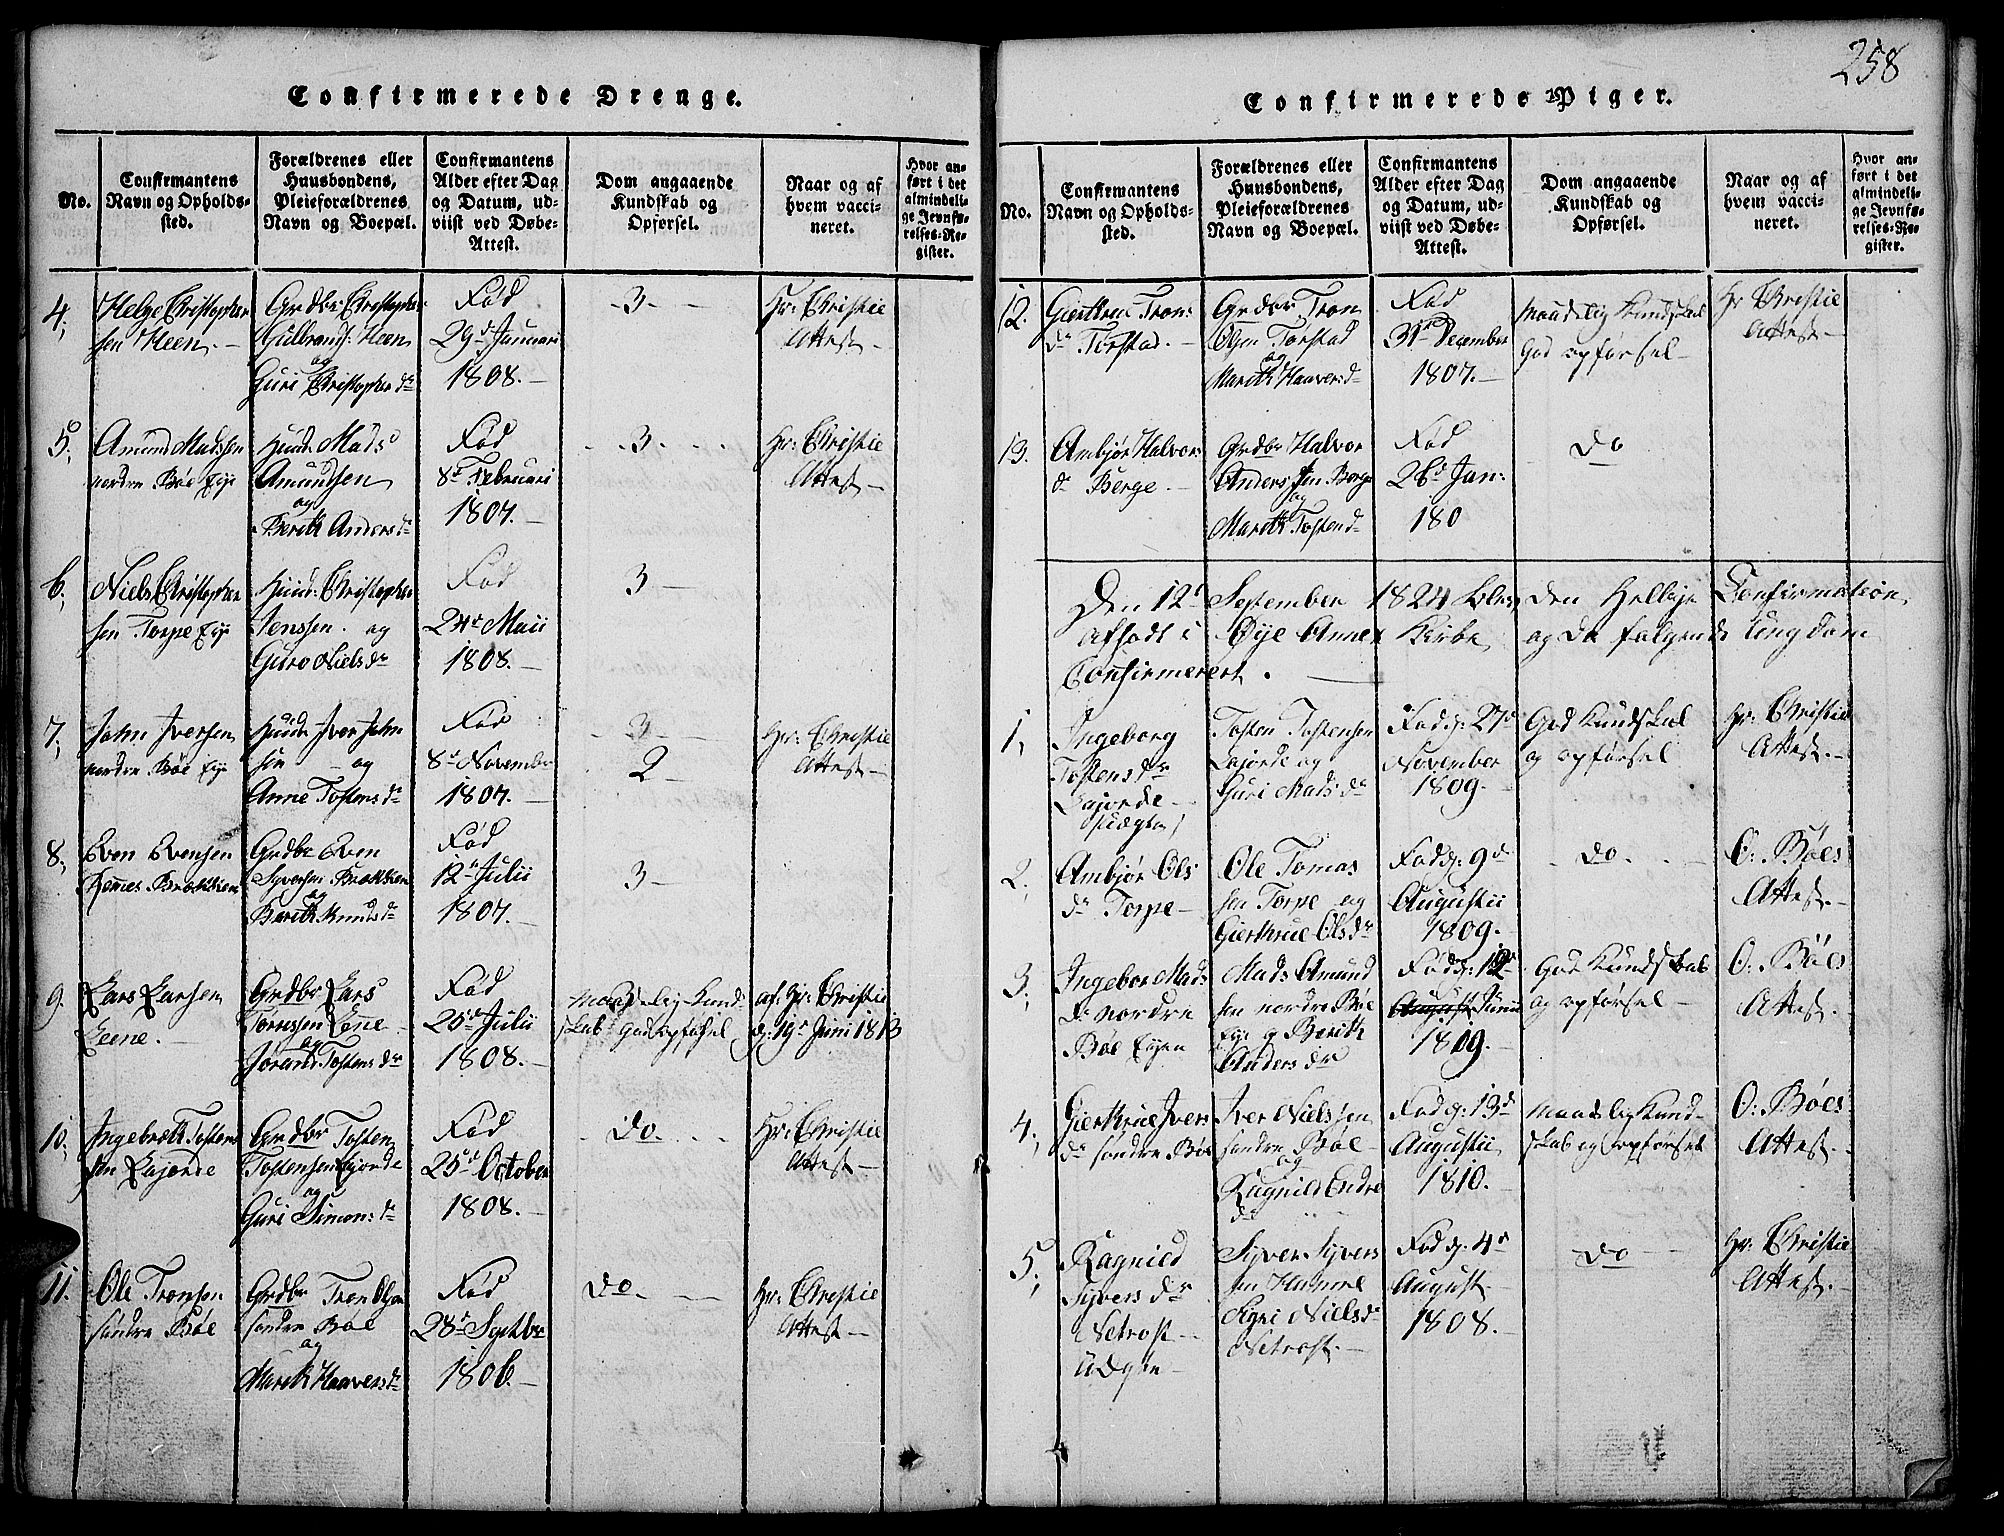 258
Confirmerede Drenge.
No.
Confirmantens
Navn og Opholds-
sted.
Forældrenes eller
Huusbondens,
Pleieforældrenes
Navn og Boepæl.
Confirmantens
Alder efter Dag
og Datum, ud-
viist ved Døbe-
Attest.
Dom angaaende
Kundskab og
Opførsel.
Naar og af
hvem vacci-
neret.
Hvor an-
ført i det
almindeli-
ge Jevnfø-
relses-Re-
gister.
4,
Helge Christopher
sen Heen. -
Grdbr Christopher
Gulbrands: Heen
og
Guri Christopher dr
Fød
29d Januari
1808. -
- 3 -
Hr: Christie
Attest -
5,
Amund Madssen
nordre Bøe Eye
Huusd Mads
Amundsen
og
Berith Anders dr
Fød
8d Februari
1807. -
- 3 -
Hr: Christie
Attest -
6,
Niels Christopher
sen Torpe Eye
Huusd: Christopher
Jenssen. og
Guro Niels dr
Fød
24d Maii
1808. -
3 -
7,
John Iversen
nordre Bøe Eye
Huusd Iver John
sen - og
Anne Tostens dr
Fød
8d November
1807. -
- 3 -
2 -
Hr: Christie
Attest -
8,
Even Evensen
Remes Brækken
Grdbr Even
Syversen Brækken
og
Berith Knuds dr
Fød
12d Julii
1807. -
3 -
9.
Lars Larsen
Leene. -
Grdbr Lars
Leene -
og
Jørand Tostens dr
Fød
25d Julii
1808. -
Maadelig Kund:
skab God opførsel
af Hr: Christie
d: 19d Juni 1813
10,
Ingebreth Tostens
sen Lajorde
Grdbr Tosten
Tostensen Lajorde
og
Guri Simon: dr
Fød
25d October
1808. -
- Do. -
Hr: Christie
Attest -
11.
Ole Tronsen
søndre Bøe
Grdbr Tron Olsen
søndre Bøe
og
Marith Haavers dr
Fød
28d Septbr
1806. -
Do. -
Hr: Christie
Attest -
Confirmerede Piger.
No.
Confirmantens
Navn og Opholds-
sted.
Forældrenes eller
Huusbondens,
Pleieforældrenes
Navn og Boepæl.
Confirmantens
Alder efter Dag
og Datum, ud-
viist ved Døbe-
Attest.
Dom angaaende
Kundskab og
Opførsel.
Naar og af
hvem vacci-
neret.
Hvor an-
ført i det
almindeli-
ge Jevnfø-
relses-Re-
gister.
12.
Giertrue Trons
dr Torstad. -
Grdbr Tron
Olsen Torstad
og
Marith Haavers dr
Fød
31d December
1807. -
Maadelig Kundskab
God opførsel -
Hr Christie
Attest -
13.
Ambjør Halvors
dr Berge -
Grdbr Halvor
Anders sen Berge
og
Marith Tosten dr
Fød
26d Jan:
180
Do
Den 12d September 1824 blev den Hellige Confirmation
afholdt i Øye Annex Kirke og da følgende Ungdom
Confirmeret. -
1,
Ingeborg
Tostens dr
Lajorde -
Tosten Tostensen
Lajorde og
Guri Mads dr
Fød d: 27d
November
1809. -
God Kundskab
og opførsel
Hr: Christie
Attest. -
2,
Ambjør Ols
dr Torpe -
Ole Tomas
sen Torpe og
Giertrue Ols dr
Fød d: 9d
Augustii
1809. -
- Do. -
O: Bøes
Attest. -
3,
Ingebor Mads
dr nordre
Bøe Eyen
Mads Amund
sen nordre Bøe
Eye og Berith
Anders dr
Fød d: 12d
August Junii
1809. -
God Kundskab
og opførsel -
O: Bøes
Attest. -
4,
Giertrue Ivers
dr søndre Bøe
Iver Nielssen
søndre Bøe -
og
Ragnild Endre
dr
Fød d: 13d
Augustii
1810. -
Maadelig Kund-
skab og opførsel
O: Bøes
Attest. -
5,
Ragnild
Syvers dr
Netrost -
Syver Syvers
sen Hamre
Sigri Niels dr
Netrost. -
Fød d: 4d
August -
1808. -
Do -
Hr: Christie
Attest. -